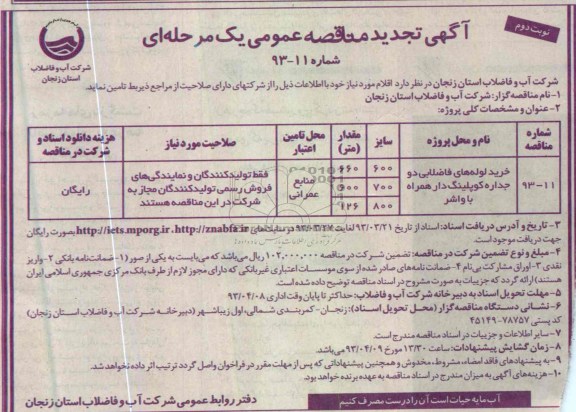 نوبت دوم
آگهی تجدید مناقصه عمومی یک مرحله‌ای
شماره ۱۱-۹۳
شرکت آب و فاضلاب
استان زنجان
شرکت آب و فاضلاب استان زنجان در نظر دارد اقلام مورد نیاز خود با اطلاعات ذیل را از شرکتهای دارای صلاحیت از مراجع ذیربط تامین نماید.
۱-نام مناقصه گزار: شرکت آب و فاضلاب استان زنجان
۲-عنوان و مشخصات کلی پروژه:
شماره مناقصه | نام و محل پروژه | سایز | مقدار (متر) | محل تامین اعتبار | صلاحیت مورد نیاز | هزینه دانلود اسناد و شرکت در مناقصه
۱۱-۹۳ | خرید لوله‌های فاضلابی دو جداره کوپلینگ دار همراه با واشر | ۶۰۰ ۷۰۰ ۸۰۰ | ۶۶۰ ۵۰۰ ۱۲۶ | منابع عمرانی | فقط تولیدکنندگان و نمایندگی‌های فروش رسمی تولیدکنندگان مجاز به شرکت در این مناقصه هستند | رایگان
۳- تاریخ و آدرس دریافت اسناد: اسناد از تاریخ ۹۳/۰۳/۲۱ لغایت در سایتهای http://iets.mporg.ir، http://znabfa.ir بصورت رایگان
جهت دریافت موجود است.
۴- مبلغ و نوع تضمین شرکت در مناقصه: تضمین شرکت در مناقصه ۱۰۲,۰۰۰,۰۰۰ ریال می‌باشد که می‌بایست به یکی از صور (۱- ضمانتنامه بانکی ۲- واریز
نقدی ۳- اوراق مشارکت بی‌نام ۴- ضمانت نامه‌های صادر شده از سوی موسسات اعتباری غیربانکی که دارای مجوز لازم از طرف بانک مرکزی جمهوری اسلامی ایران
هستند) ارائه گردد که جزییات به صورت مشروح در اسناد مناقصه توضیح داده شده است.
۵- مهلت تحویل اسناد به دبیرخانه شرکت آب و فاضلاب: حداکثر تا پایان وقت اداری ۹۳/۰۴/۰۸
۶- نشانی دستگاه مناقصه گزار (محل تحویل اسناد): زنجان- کمربندی شمالی، اول زیباشهر (دبیرخانه شرکت آب و فاضلاب استان زنجان)
کد پستی ۷۸۷۵۷-۴۵۱۴۹
۷- سایر اطلاعات و جزییات در اسناد مناقصه مندرج است.
۸- زمان گشایش پیشنهادات: ساعت ۱۳/۳۰ مورخ ۹۳/۰۴/۰۹ می‌باشد.
۹- به پیشنهادهای فاقد امضاء، مشروط، مخدوش و همچنین پیشنهاداتی که پس از مهلت مقرر در فراخوان واصل گردد ترتیب اثر داده نخواهد شد.
۱۰- هزینه‌های آگهی به میزان مندرج در اسناد مناقصه به عهده برنده خواهد بود.
آب مایه حیات است آن را درست مصرف کنیم
دفتر روابط عمومی شرکت آب و فاضلاب استان زنجان